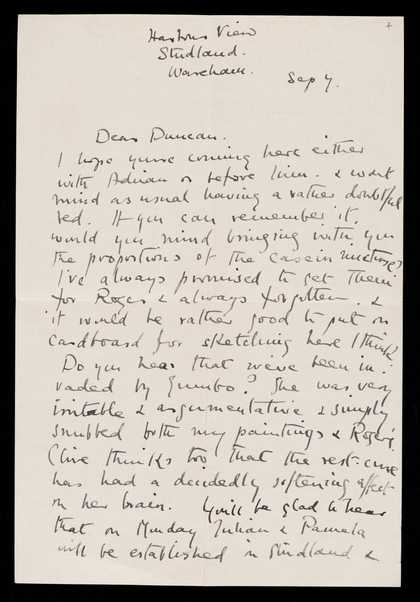 Harbour View
Studland.
Wareham.
Sep 7.
Dear Duncan.
I hope youre coming here either
with Adrian or before him. & wont
mind as usual having a rather doubtful
bed. If you can remember it,
would you mind bringing with you
the proportions of the casein mixture?
I've always promised to get them
for Roger & always forgotten. &
it would be rather good to put on
cardboard for sketching here I think.
Do you hear that we've been in-
vaded by Gumbo? She was very
irritable & argumentative & simply
snubbed both my paintings & Roger's.
Clive thinks too that the rest-cure
has had a decidedly softening effect
on her brain. You'll be glad to hear
that on Monday Julian & Pamela
will be established in Studland &